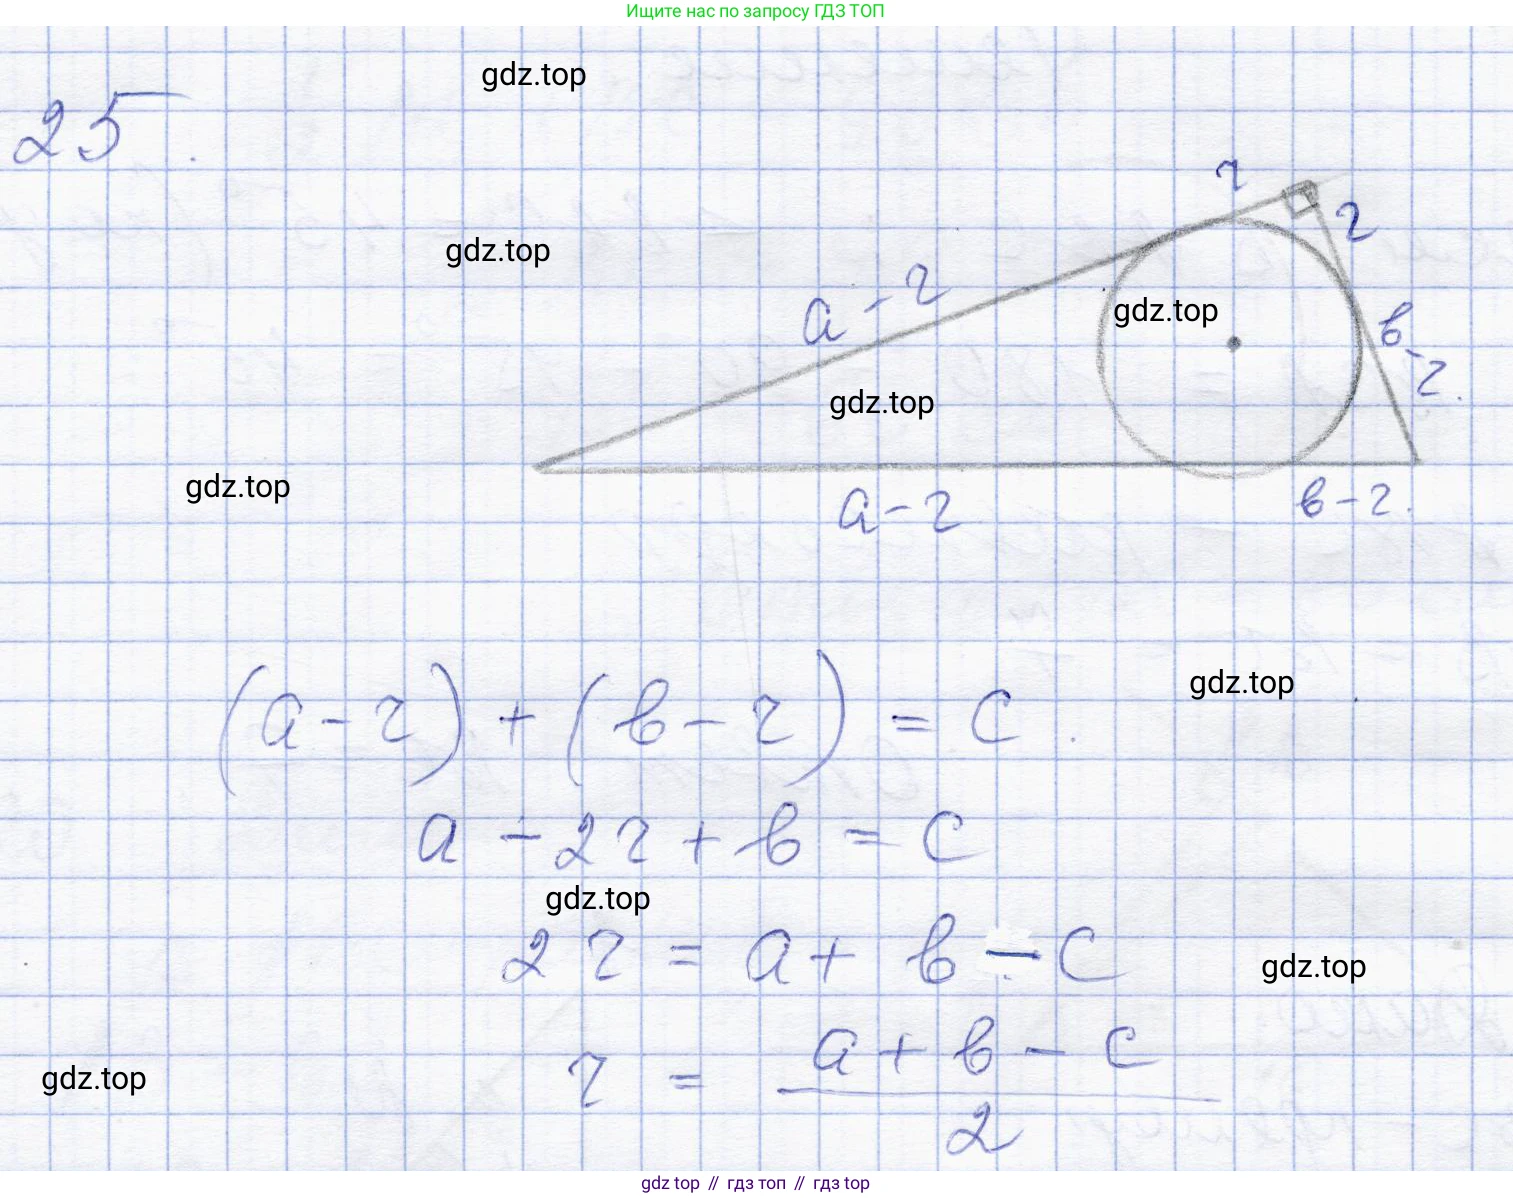 Ищите нас по запросу ГДЗ ТОП
gdz.top
25.
r
r
gdz.top
a - r
gdz.top
в - r.
gdz.top
gdz.top
a - r
в - r.
gdz.top
(a - r) + (в - r) = c.
a - 2r + в = c
gdz.top
2r = a + в - c
gdz.top
a + в - c
r =
gdz.top
2
gdz top // гдз топ // гдз top